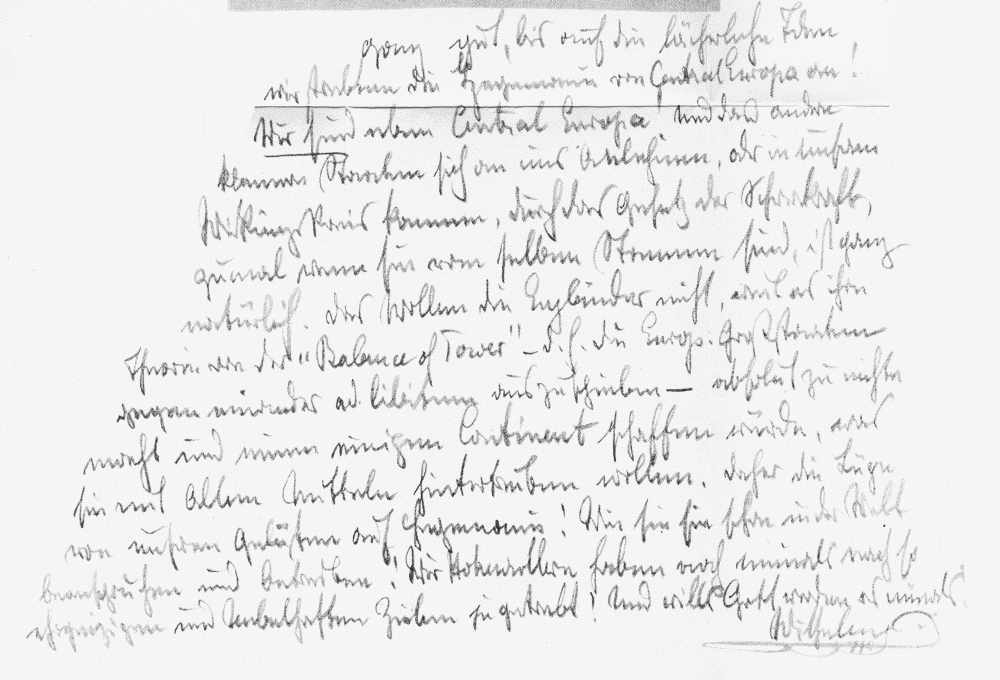 ganz gut, bis auf die lächerliche Idee
wir strebten die Hegemonie von Central Europa an!
Wir sind eben Central Europa und das andere
kleinere Staaten sich an uns anlehnen, oder in unseren
Wirkungskreis kommen, durch das Gesetz der Schwerkraft,
zumal wenn sie vom selben Stamme sind, ist ganz
natürlich. Das wollen die Engländer nicht, weil es ihre
Theorie von der "Balance of Power" – d.h. die Europ: Großstaaten
gegen einander ad libitum auszuspielen – absolut zu nichte
macht und einen einigen Continent schaffen würde, was
sie mit Allen Mitteln hintertreiben wollen. Daher die Lüge
von unseren Gelüsten auf Hegemonie! Wie sie sie schon in der Welt
beanspruchen und betreiben! Wir Hohenzollern haben noch niemals nach so
ehrgeizigen und nebelhaften Zielen gestrebt! Und wills Gott werden es niemals.
Wilhelm